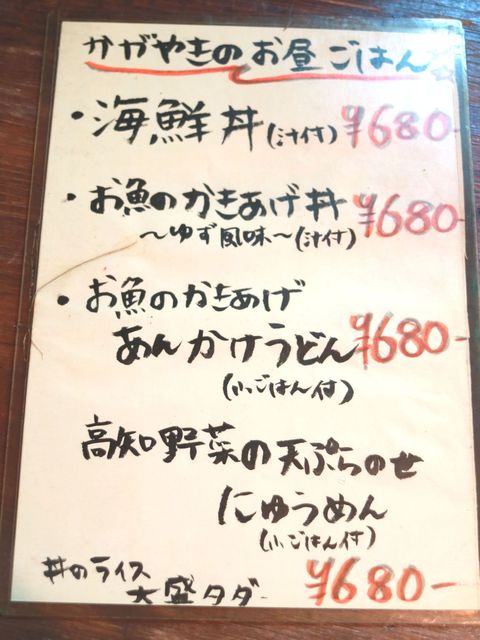 かがやきのお昼ごはん
・海鮮丼(汁付) ¥680-
・お魚のかきあげ丼 ¥680-
～ゆず風味～(汁付)
・お魚のかきあげ
あんかけうどん ¥680-
(小ごはん付)
高知野菜の天ぷらのせ
にゅうめん
(小ごはん付)
丼のライス
大盛タダ ¥680-